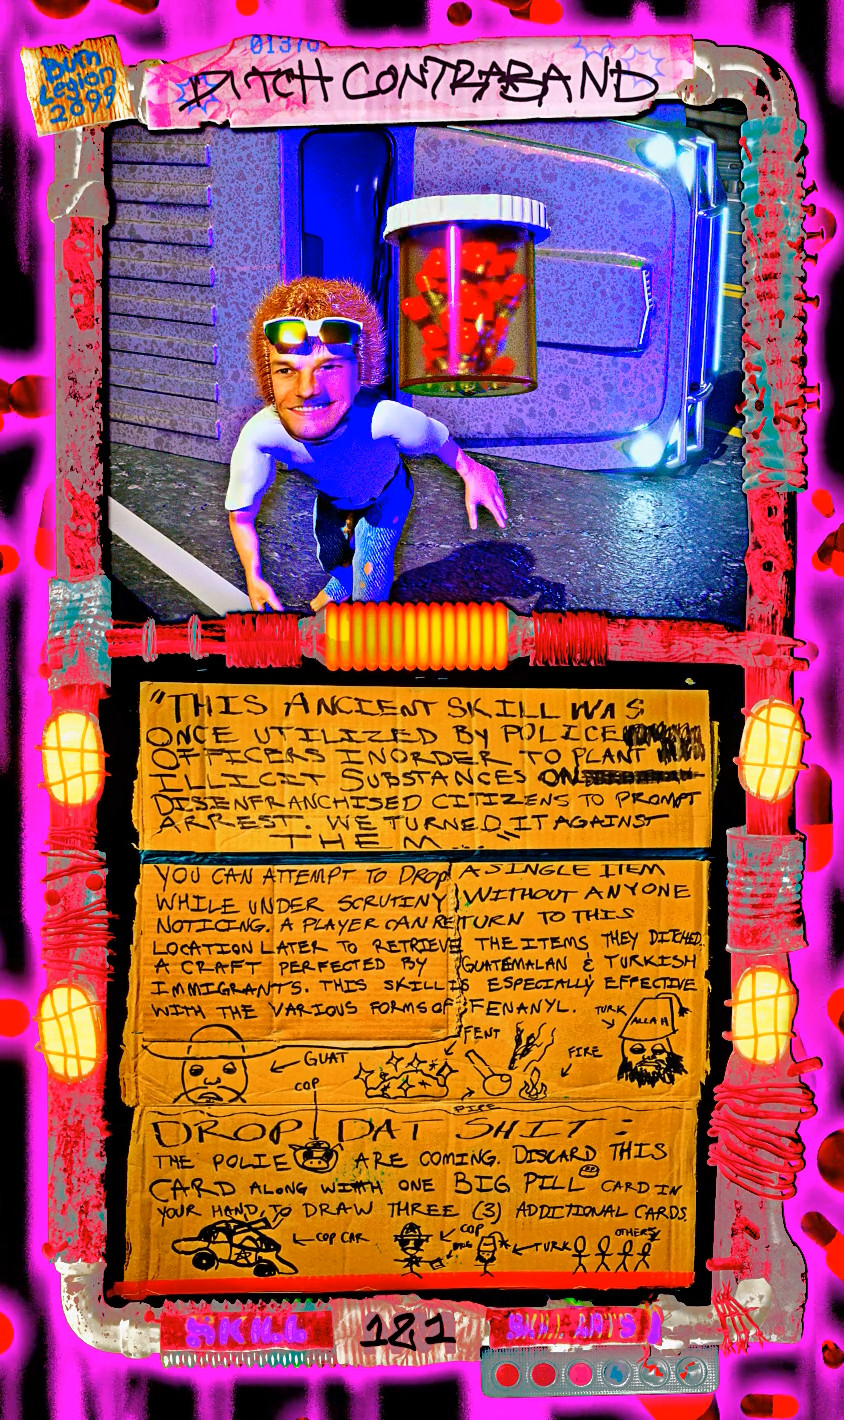 01370
BUM
LEGION
2099
DITCH CONTRABAND
"THIS ANCIENT SKILL WAS
ONCE UTILIZED BY POLICE
OFFICERS INORDER TO PLANT
ILLICIT SUBSTANCES ON
DISENFRANCHISED CITIZENS TO PROMPT
ARREST. WE TURNED IT AGAINST
THEM..."
YOU CAN ATTEMPT TO DROP A SINGLE ITEM
WHILE UNDER SCRUTINY WITHOUT ANYONE
NOTICING. A PLAYER CAN RETURN TO THIS
LOCATION LATER TO RETRIEVE THE ITEMS THEY DITCHED.
A CRAFT PERFECTED BY GUATEMALAN & TURKISH
IMMIGRANTS. THIS SKILL IS ESPECIALLY EFFECTIVE
WITH THE VARIOUS FORMS OF FENANYL.
TURK
ALLAH
FENT
GUAT
FIRE
COP
PIPE
DROP DAT SHIT:
THE POLIE ARE COMING. DISCARD THIS
CARD ALONG WITH ONE BIG PILL CARD IN
YOUR HAND, TO DRAW THREE (3) ADDITIONAL CARDS.
COP CAR
COP
TURK
OTHERS
SKILL
121